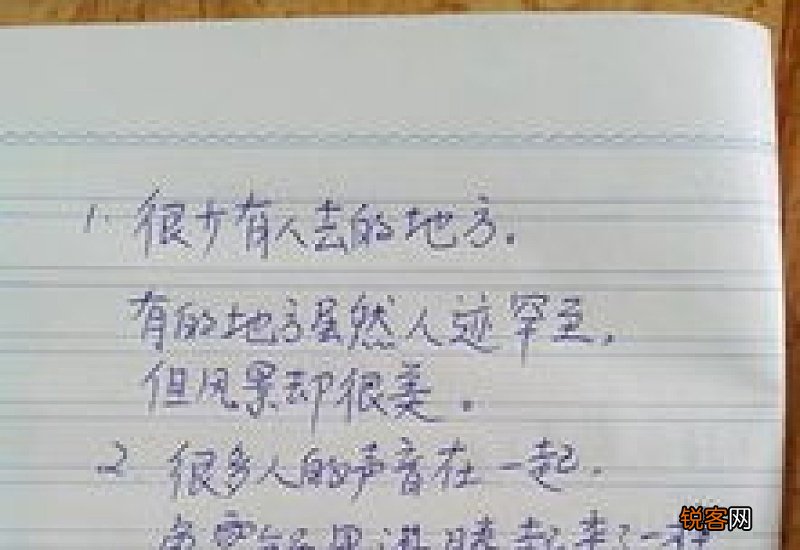 1. 很少有人去的地方。
有的地方虽然人迹罕至，
但风景却很美。
2 很多人的声音在一起.
起来了一
锐客网